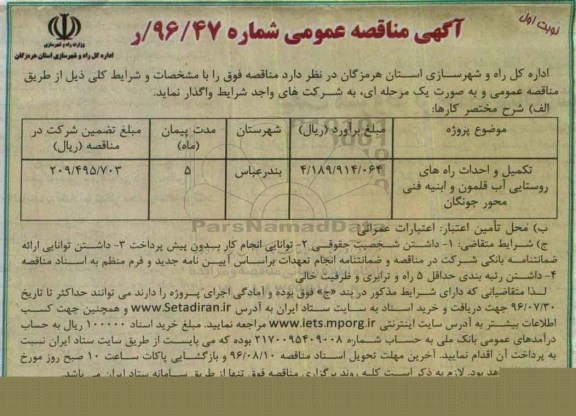 نوبت اول
آگهی مناقصه عمومی شماره ۹۶/۴۷/ر
وزارت راه و شهرسازی
اداره کل راه و شهرسازی استان هرمزگان
اداره کل راه و شهرسازی استان هرمزگان در نظر دارد مناقصه فوق را با مشخصات و شرایط کلی ذیل از طریق
مناقصه عمومی و به صورت یک مرحله ای، به شرکت های واجد شرایط واگذار نماید.
الف) شرح مختصر کارها:
موضوع پروژه
مبلغ برآورد (ریال)
شهرستان
مدت پیمان (ماه)
مبلغ تضمین شرکت در مناقصه (ریال)
تکمیل و احداث راه های
روستایی آب قلمون و ابنیه فنی
محور جونگان
۴/۱۸۹/۹۱۴/۰۶۴
بندرعباس
۵
۲۰۹/۴۹۵/۷۰۳
ParsNamadData
ب) محل تأمین اعتبار: اعتبارات عمرانی
ج) شرایط متقاضی: ۱- داشتن شخصیت حقوقی ۲- توانایی انجام کار بدون پیش پرداخت ۳- داشتن توانایی ارائه
ضمانتنامه بانکی شرکت در مناقصه و ضمانتنامه انجام تعهدات براساس آیین نامه جدید و فرم منظم به اسناد مناقصه
۴- داشتن رتبه بندی حداقل ۵ راه و ترابری و ظرفیت خالی
لذا متقاضیانی که دارای شرایط مذکور در بند «ج» فوق بوده و آمادگی اجرای پروژه را دارند می توانند حداکثر تا تاریخ
۹۶/۰۷/۳۰ جهت دریافت و خرید اسناد به سایت ستاد ایران به آدرس www.Setadiran.ir و همچنین جهت کسب
اطلاعات بیشتر به آدرس سایت اینترنتی www.iets.mporg.ir مراجعه نمایند. مبلغ خرید اسناد ۱۰۰۰۰۰ ریال به حساب
درآمدهای عمومی بانک ملی به حساب شماره ۲۱۷۰۰۹۵۴۰۹۰۰۸ بوده که می بایست از طریق سایت ستاد ایران نسبت
به پرداخت آن اقدام نمایید. آخرین مهلت تحویل اسناد مناقصه ۹۶/۰۸/۱۰ و بازگشایی پاکات ساعت ۱۰ صبح روز مورخ
هد بود. لازم به ذکر است کلیه روند برگزاری مناقصه فوق تنها از طریق سامانه ستاد ایران می باشد.